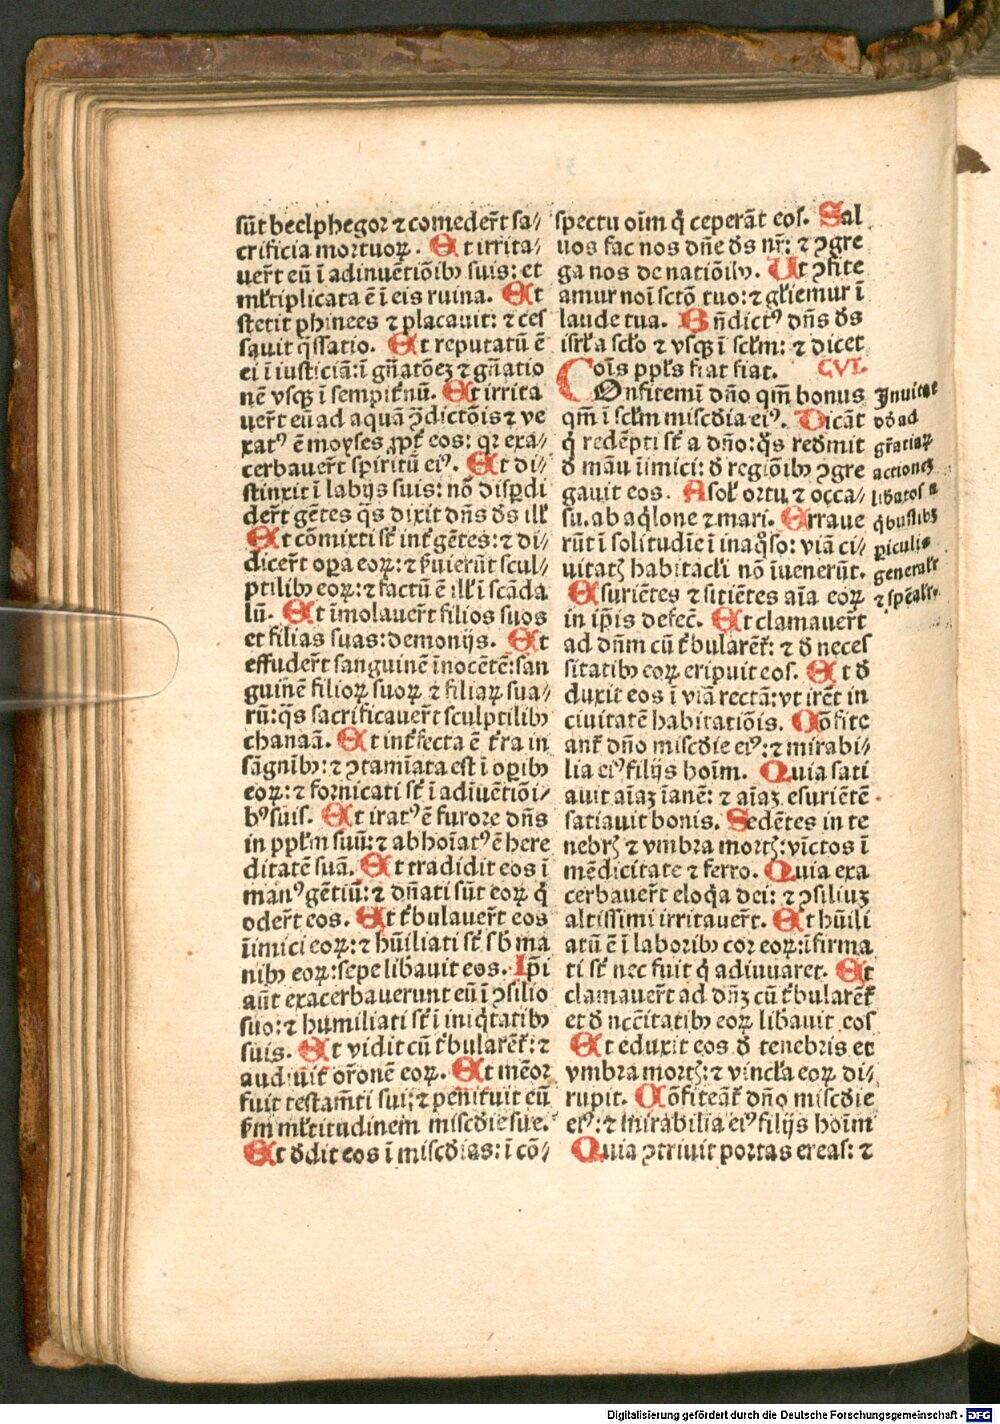 sūt beelphegor ⁊ comeder̄t sa⸗
crificia mortuoꝝ. Et irrita⸗
uer̄t eū ī adinuētiōibꝰ suis: et
ml̄tiplicata ē ī eis ruina. Et
stetit phinees ⁊ placauit: ⁊ ces
sauit q̄ssatio. Et reputatū ē
ei ī iusticiā: ī gn̄atōeꝫ ⁊ gn̄atio
nē vsqꝫ ī sempit̄nū. Et irrita
uer̄t eū ad aquā ↄ̄dictōis ⁊ ve
xatꝰ ē moyses ꝓpt̄ eos: qꝛ exa⸗
cerbauer̄t spiritū eiꝰ. Et di⸗
stinxit ī labijs suis: nō disꝑdi
der̄t gētes q̄s dixit dn̄s d̄s ill̄
Et cōmixti st̄ int̄ gētes: ⁊ di⸗
dicer̄t oꝑa eoꝝ: ⁊ ẜuierūt scul⸗
ptilibꝰ eoꝝ: ⁊ factū ē ill̄ ī scāda
lū. Et īmolauer̄t filios suos
et filias suas: demonijs. Et
effuder̄t sanguinē īnocētē: san
guinē filioꝝ suoꝝ ⁊ filiaꝝ sua⸗
rū: q̄s sacrificauer̄t sculptilibꝰ
chanaā. Et int̄fecta ē t̄ra in
sāgnībꝰ: ⁊ ↄtamīata est ī oꝑibꝰ
eoꝝ: ⁊ fornicati st̄ ī adīuētiōi⸗
bꝰ suis. Et iratꝰ ē furore dn̄s
in ppl̄m suū: ⁊ abhoīatꝰ ē here
ditatē suā. Et tradidit eos ī
manꝰ gētiū: ⁊ dn̄ati sūt eoꝝ q̄
oder̄t eos. Et t̄bulauer̄t eos
īimici eoꝝ: ⁊ hūiliati st̄ sb̄ ma
nibꝰ eoꝝ: sepe lib̄auit eos. Ip̄i
aūt exacerbauerunt eū ī ↄsilio
suo: ⁊ humiliati st̄ ī iniq̄tatibꝰ
suis. Et vidit cū t̄bularēt̄: ⁊
audiuit or̄onē eoꝝ. Et mēor
fuit testam̄ti sui: ⁊ penituit eū
ẜm ml̄titudinem miscd̄ie sue.
Et d̄dit eos ī miscd̄ias: ī cō⸗
spectu oīm q̄ ceperāt eos. Sal
uos fac nos dn̄e d̄s nr̄: ⁊ ↄgre
ga nos de natiōibꝰ. Ut ↄfite
amur noī sctō tuo: ⁊ gl̄iemur ī
laude tua. Bn̄dictꝰ dn̄s d̄s
isrl̄ a scl̄o ⁊ vsqꝫ ī scl̄m: ⁊ dicet
oīs ppl̄s fiat fiat. CVI.
COnfitemī dn̄o qm̄ bonus
qm̄ ī scl̄m miscd̄ia eiꝰ. Dicāt
q̄ redēpti st̄ a dn̄o: q̄s red̄mit
d̄ māu īimici: d̄ regiōibꝰ ↄgre
gauit eos. A sol̄ ortu ⁊ occa⸗
su. ab aq̄lone ⁊ mari. Erraue
rūt ī solitudīe ī inaq̄so: viā ci⸗
uitatꝭ habitacl̄i nō īuenerūt.
Esuriētes ⁊ sitiētes: aīa eoꝝ
in ip̄is defec̄. Et clamauer̄t
ad dn̄m cū t̄bularēt̄: ⁊ d̄ neces
sitatibꝰ eoꝝ eripuit eos. Et d̄
duxit eos ī viā rectā: vt irēt in
ciuitatē habitatiōis. Cōfite
ant̄ dn̄o miscd̄ie eiꝰ: ⁊ mirabi⸗
lia eiꝰ filijs hoīm. Quia sati
auit aīaꝫ īanē: ⁊ aīaꝫ esuriētē
satiauit bonis. Sedētes in te
nebrꝭ ⁊ vmbra mortꝭ: vīctos ī
mēdicitate ⁊ ferro. Quia exa
cerbauer̄t eloq̄a dei: ⁊ ↄsiliuꝫ
altissimi irritauer̄t. Et hūili
atū ē ī laboribꝰ cor eoꝝ: īfirma
ti st̄ nec fuit q̄ adiuuaret. Et
clamauer̄t ad dn̄ꝫ cū t̄bularēt̄
et d̄ ncc̄itatibꝰ eoꝝ lib̄auit eos
Et eduxit eos d̄ tenebris et
vmbra mortꝭ: ⁊ vincl̄a eoꝝ di⸗
rupit. Cōfiteāt̄ dn̄o miscd̄ie
eiꝰ: ⁊ mirabilia eiꝰ filijs hoīm
Quia ↄtriuit portas ereas: ⁊
Inuitat
dd̄ ad
gr̄atiaꝝ
actioneꝫ
lib̄atos a
q̄busl̄ibꝫ
ꝑiculis
general̄r
⁊ sp̄eal̄r.
Digitalisierung gefördert durch die Deutsche Forschungsgemeinschaft - DFG